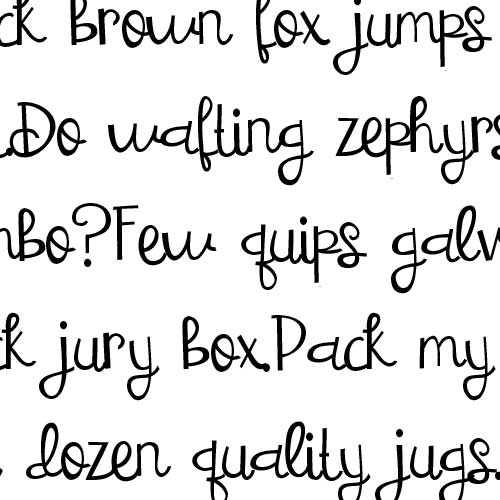 ck brown fox jumps
.Do wafting zephyrs
mbo?Few quips galv
ck jury box.Pack my
dozen quality jugs.